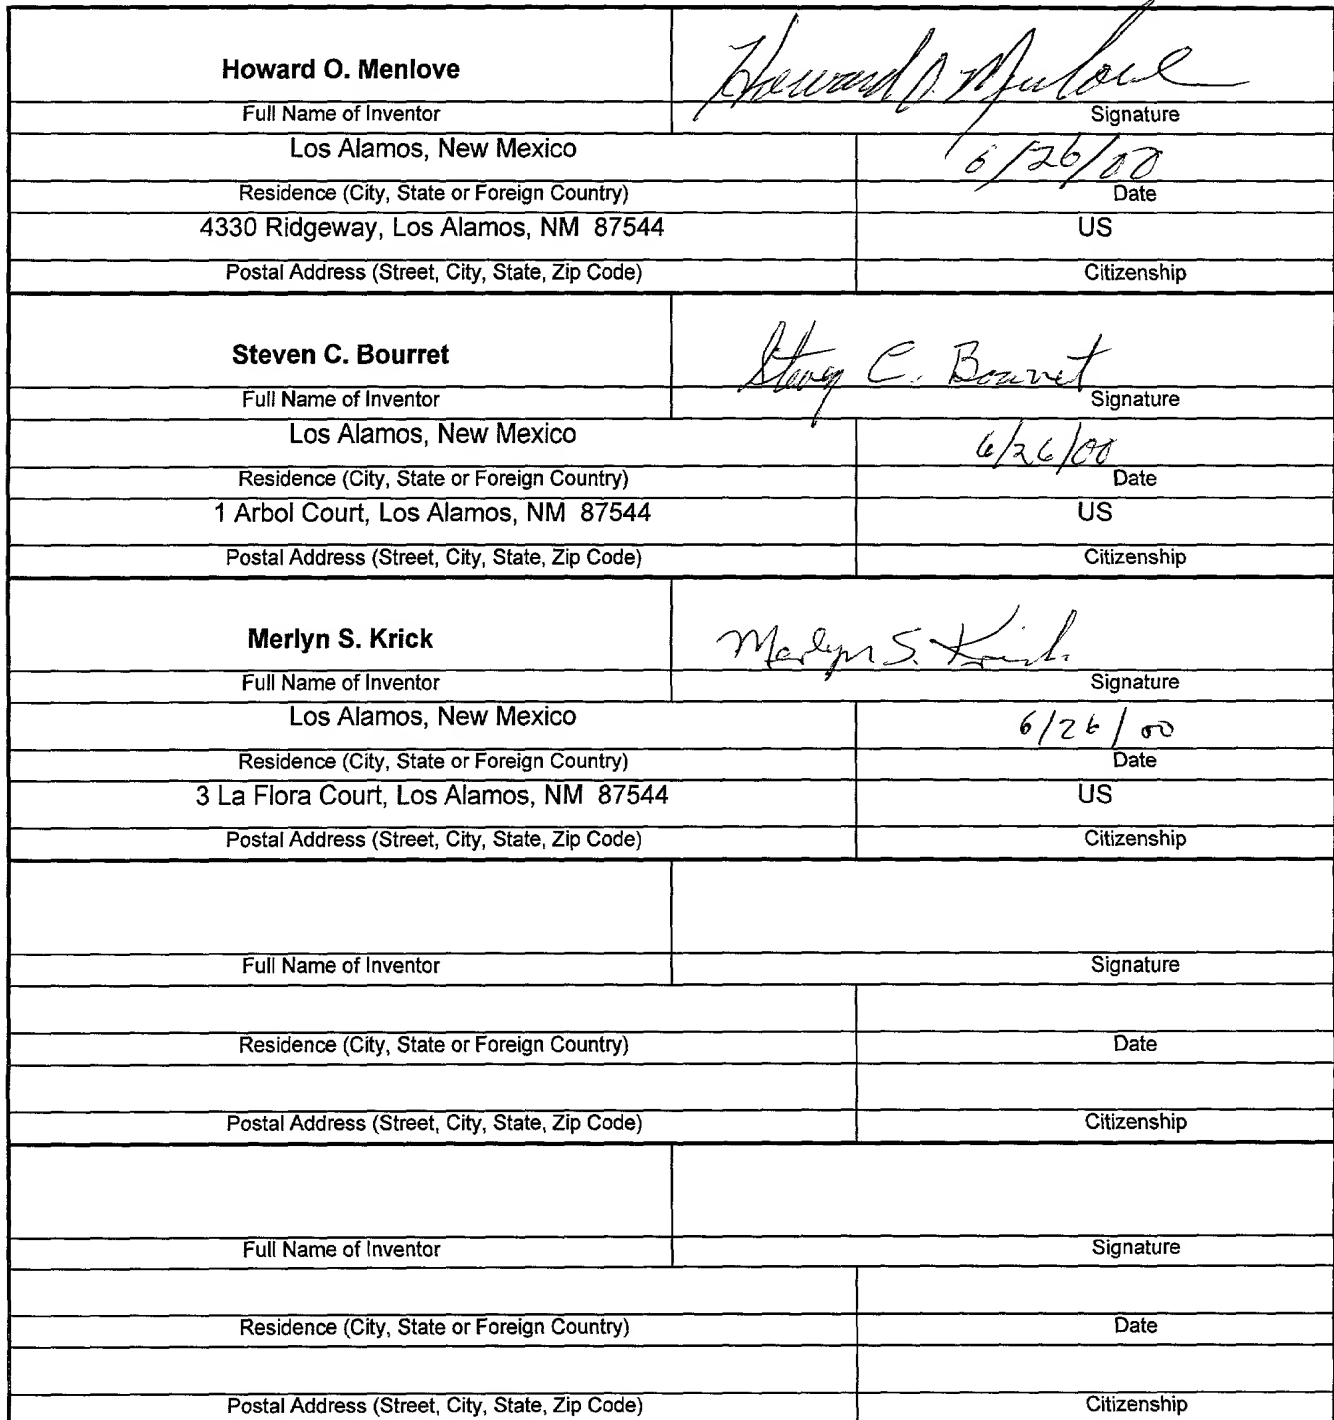 Howard O. Menlove
Howard O. Menlove
Full Name of Inventor Signature
Los Alamos, New Mexico 6/26/00
Residence (City, State or Foreign Country) Date
4330 Ridgeway, Los Alamos, NM 87544 US
Postal Address (Street, City, State, Zip Code) Citizenship
Steven C. Bourret
Steven C. Bourret
Full Name of Inventor Signature
Los Alamos, New Mexico 6/26/00
Residence (City, State or Foreign Country) Date
1 Arbol Court, Los Alamos, NM 87544 US
Postal Address (Street, City, State, Zip Code) Citizenship
Merlyn S. Krick Merlyn S. Krick
Full Name of Inventor Signature
Los Alamos, New Mexico 6/26/00
Residence (City, State or Foreign Country) Date
3 La Flora Court, Los Alamos, NM 87544 US
Postal Address (Street, City, State, Zip Code) Citizenship
Full Name of Inventor Signature
Residence (City, State or Foreign Country) Date
Postal Address (Street, City, State, Zip Code) Citizenship
Full Name of Inventor Signature
Residence (City, State or Foreign Country) Date
Postal Address (Street, City, State, Zip Code) Citizenship